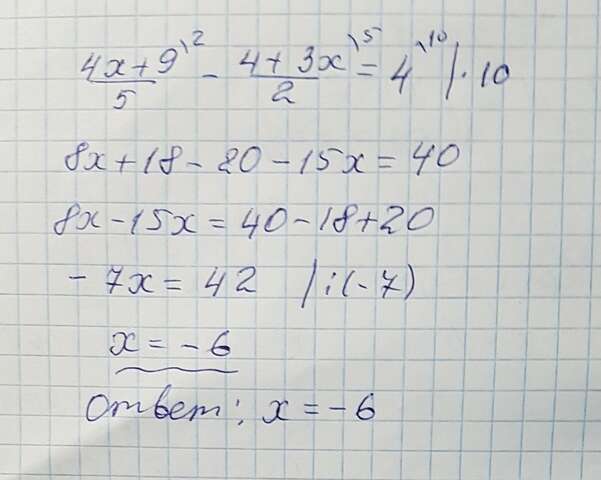 (4x+9)/5 \2 - (4+3x)/2 \5 = 4 \10 |·10
8x+18-20-15x=40
8x-15x=40-18+20
-7x=42 |:(-7)
x=-6
Ответ: x=-6